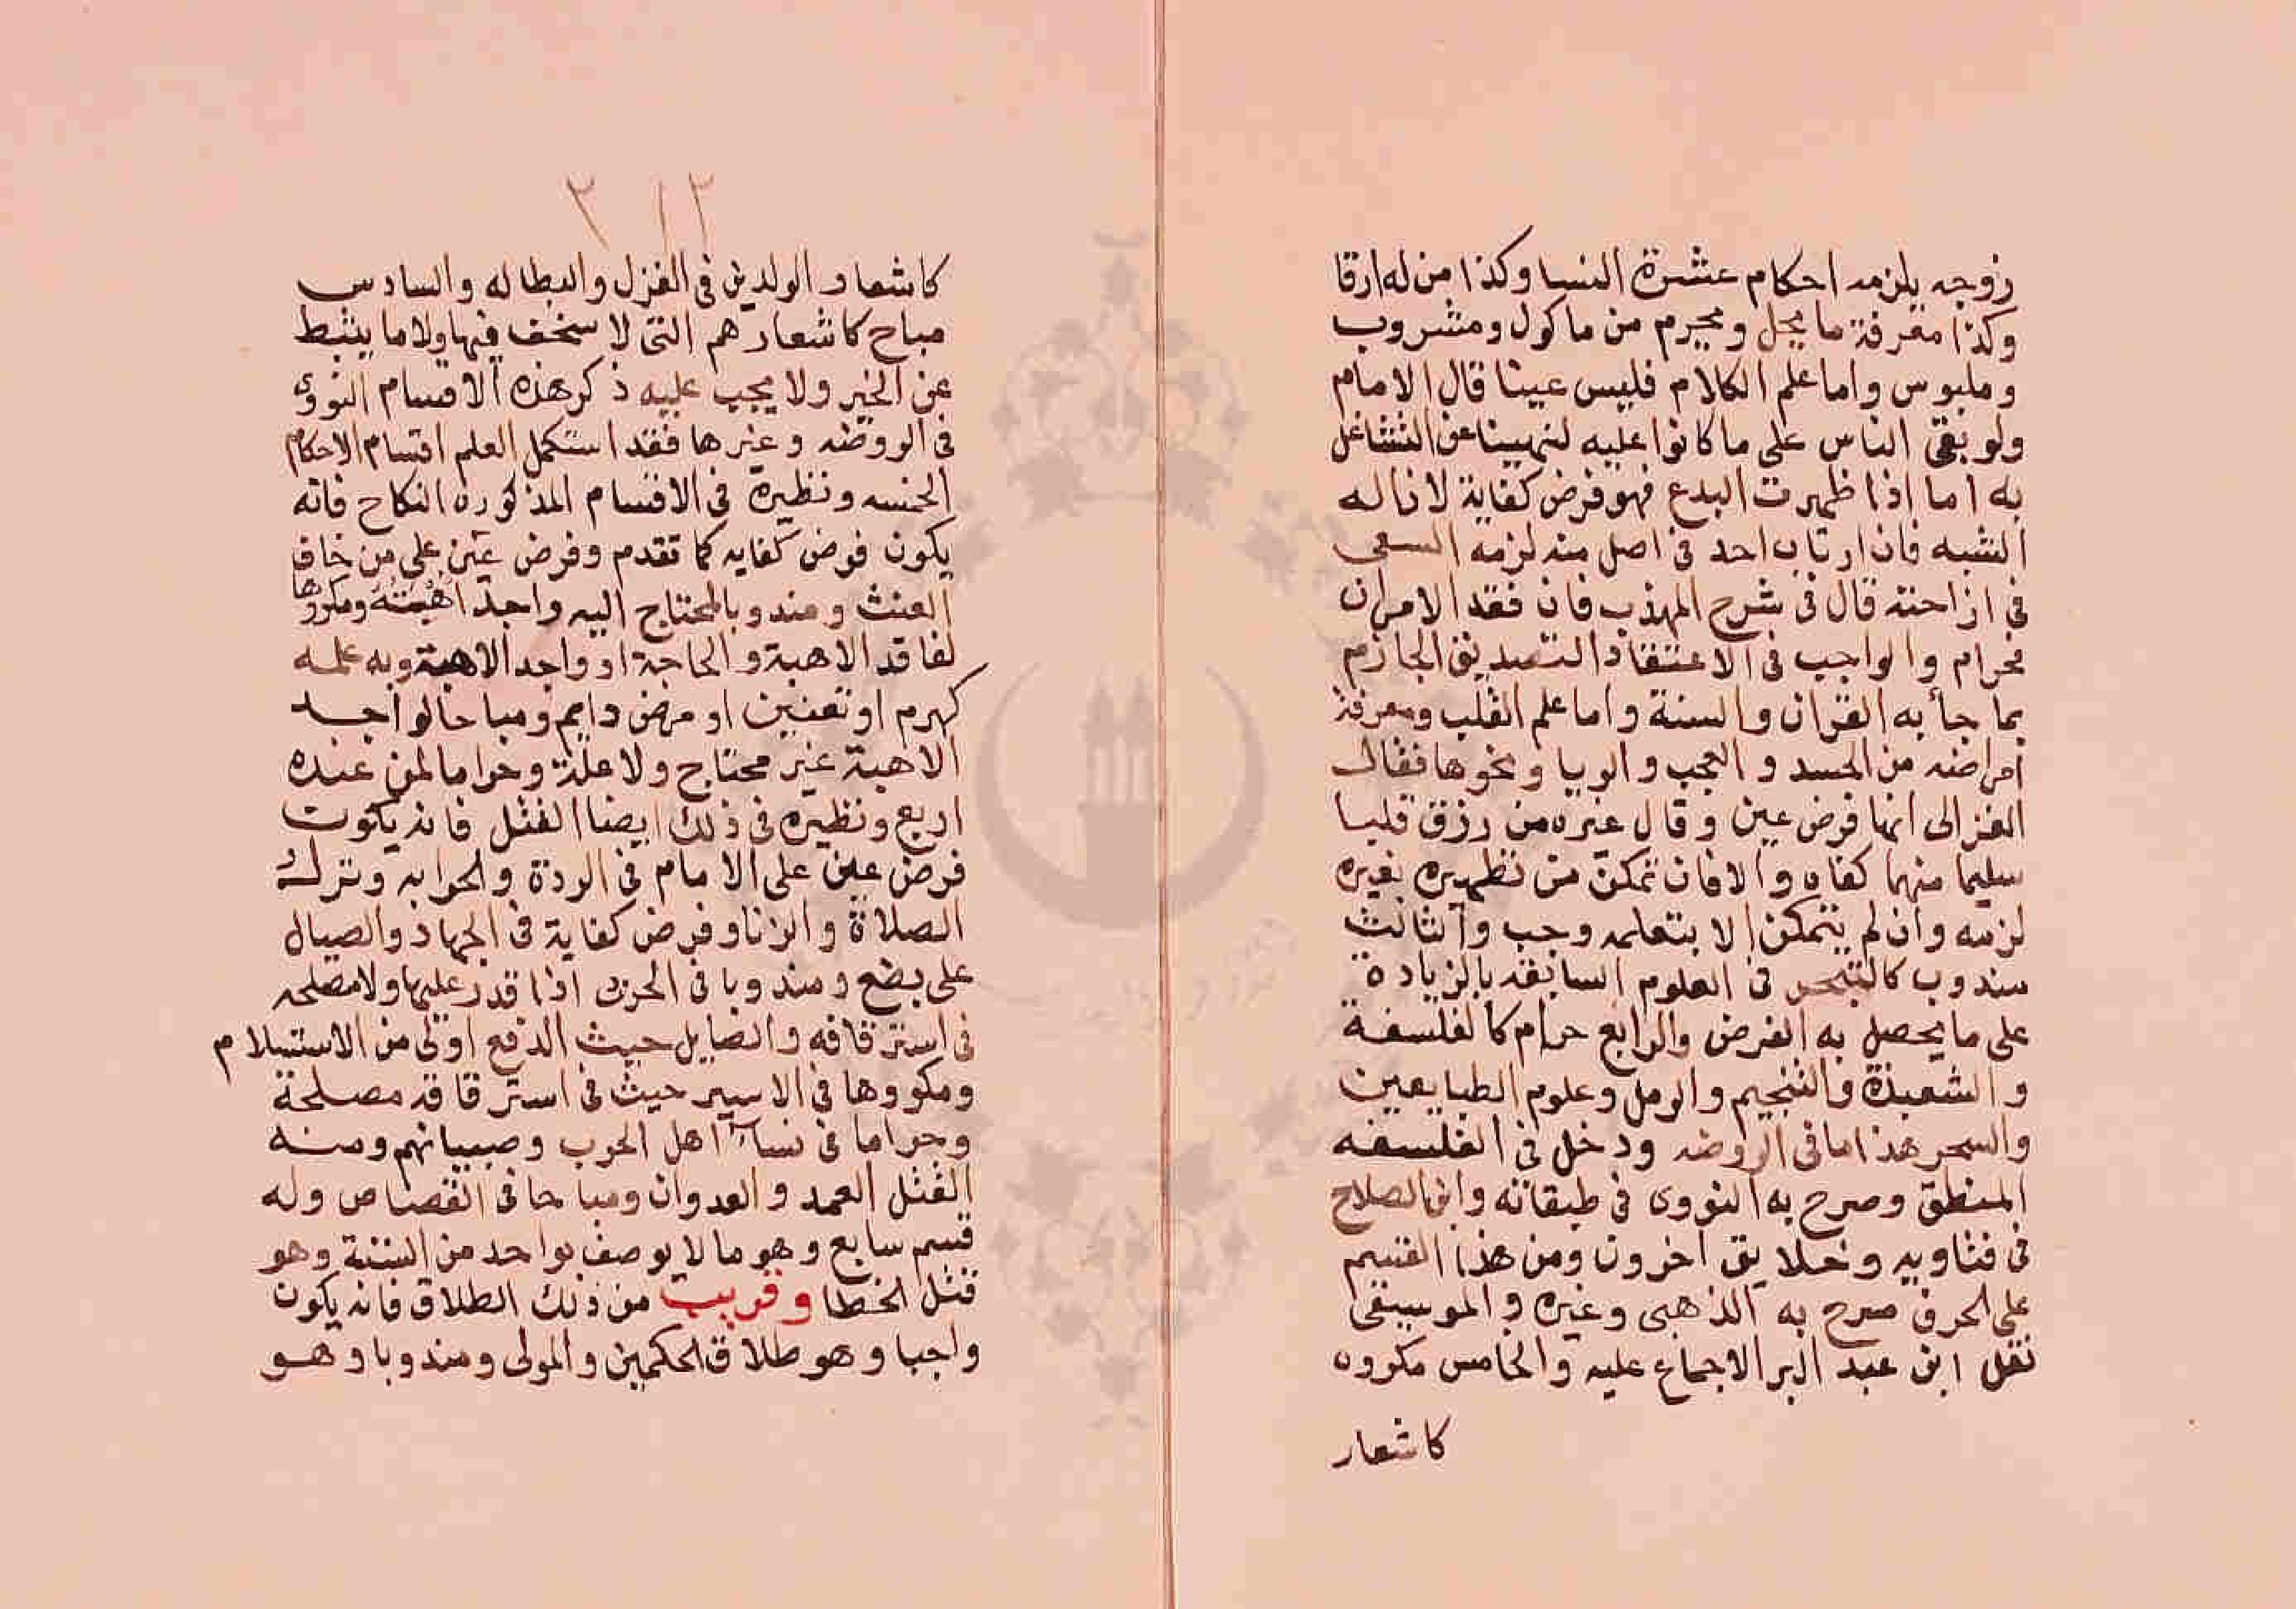 زوجه يلزمه احكام عشرة النسا وكذا من له ارقا
وكذا معرفة ما يحل ويحرم من ماكول ومشروب
وملبوس واما علم الكلام فليس عينا قال الامام
ولو بقى الناس على ما كانوا عليه لنهينا عن التشاغل
به اما اذا ظهرت البدع فهو فرض كفاية لازاله
الشبه فان ارتاب احد فى اصل منه لزمه السعى
فى ازاحته قال فى شرح المهذب فان فقد الامران
فحرام والواجب فى الاعتقاد التصديق الجازم
بما جأ به القران والسنة واما علم القلب ومعرفة
امراضه من الحسد والعجب والريا ونحوها فقال
الغزالى انها فرض عين وقال غيره من رزق قلبا
سليما منها كفاه والا فان تمكن من تطهيره بغيره
لزمه وان لم يتمكن الا بتعلمه وجب والثالث
مندوب كالتبحر فى العلوم السابقه بالزيادة
على ما يحصل به الفرض والرابع حرام كالفلسفة
والشعبذة والتنجيم والرمل وعلوم الطبايعين
والسحر هذا ما فى الروضه ودخل فى الفلسفه
المنطق وصرح به النووى فى طبقاته وابن الصلاح
فى فتاويه وخلايق اخرون ومن هذا القسيم
على الحرف صرح به الذهبى وغيره والموسيقى
نقل ابن عبد البر الاجماع عليه والخامس مكروه
كاشعار
٢١٢
كاشعار الولدين فى الغزل والبطاله والسادس
مباح كاشعارهم التى لا سخف فيها ولا ما يثبط
عن الخير ولا يجب عليه ذكر هذه الاقسام النووى
فى الروضه وغيرها فقد استكمل العلم اقسام الاحكام
الخمسه ونظيره فى الاقسام المذكوره النكاح فانه
يكون فرض كفايه كما تقدم وفرض عين على من خاف
العنت ومندوبا لمحتاج اليه واجد اهبته ومكروها
لفاقد الاهبة والحاجة او واجد الاهبة وبه علمه
كهرم او تعنين او مرض دايم ومباحا لواجد
الاهبة غير محتاج ولا علة وحراما لمن عنده
اربع ونظيره فى ذلك ايضا القتل فانه يكون
فرض عين على الامام فى الردة والحرابه وترك
الصلاة والزنا وفرض كفاية فى الجهاد والصيال
على بضع ومندوبا فى الحربى اذا قدر عليها ولا مصلحه
فى استرقاقه والصايل حيث الدفع اولى من الاستسلام
ومكروها فى الاسير حيث فى استرقاقه مصلحة
وحراما فى نسآ اهل الحرب وصبيانهم ومنه
القتل العمد والعدوان ومباحا فى القصاص وله
قسم سابع وهو ما لا يوصف بواحد من الستة وهو
قتل الخطا وقريب من ذلك الطلاق فانه يكون
واجبا وهو طلاق الحكمين والمولى ومندوبا وهو